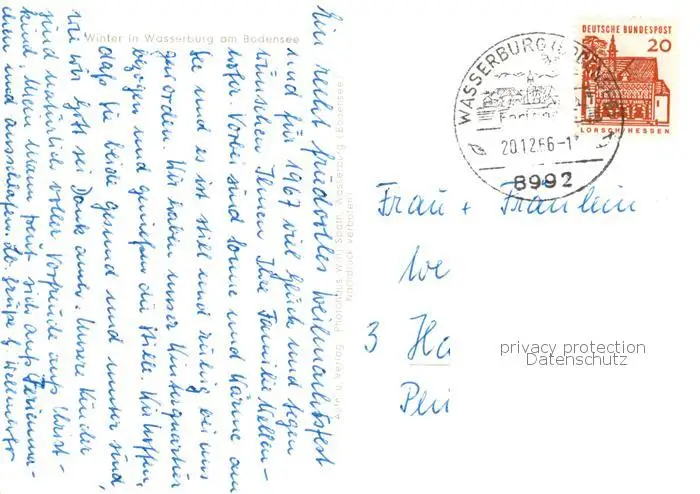 Winter in Wasserburg am Bodensee
Ein recht friedvolles Weihnachtsfest
und für 1967 viel Glück und Segen
wünschen Ihnen Ihre Familie Hellen-
Vorbei sind Sonne und Wärme am
See und es ist still und ruhig bei uns
geworden. Wir haben unser Winterquartier
bezogen und genießen die Stille. Wir hoffen,
daß Sie beide gesund und munter sind,
wie wir Gott sei Dank auch. Unsere Kinder
sind natürlich voller Vorfreude aufs Christ-
kind. Mein Mann freut sich aufs
und ausschlafen. Grüße
Verlag Photohaus Wilh. Wasserburg (Bodensee)
Nachdruck verboten
WASSERBURG (BODENSEE)
20.12.66-1
8992
DEUTSCHE BUNDESPOST
20
LORSCH/HESSEN
Frau + Fräulein
We
3 Ha
Pei
privacy protection
Datenschutz